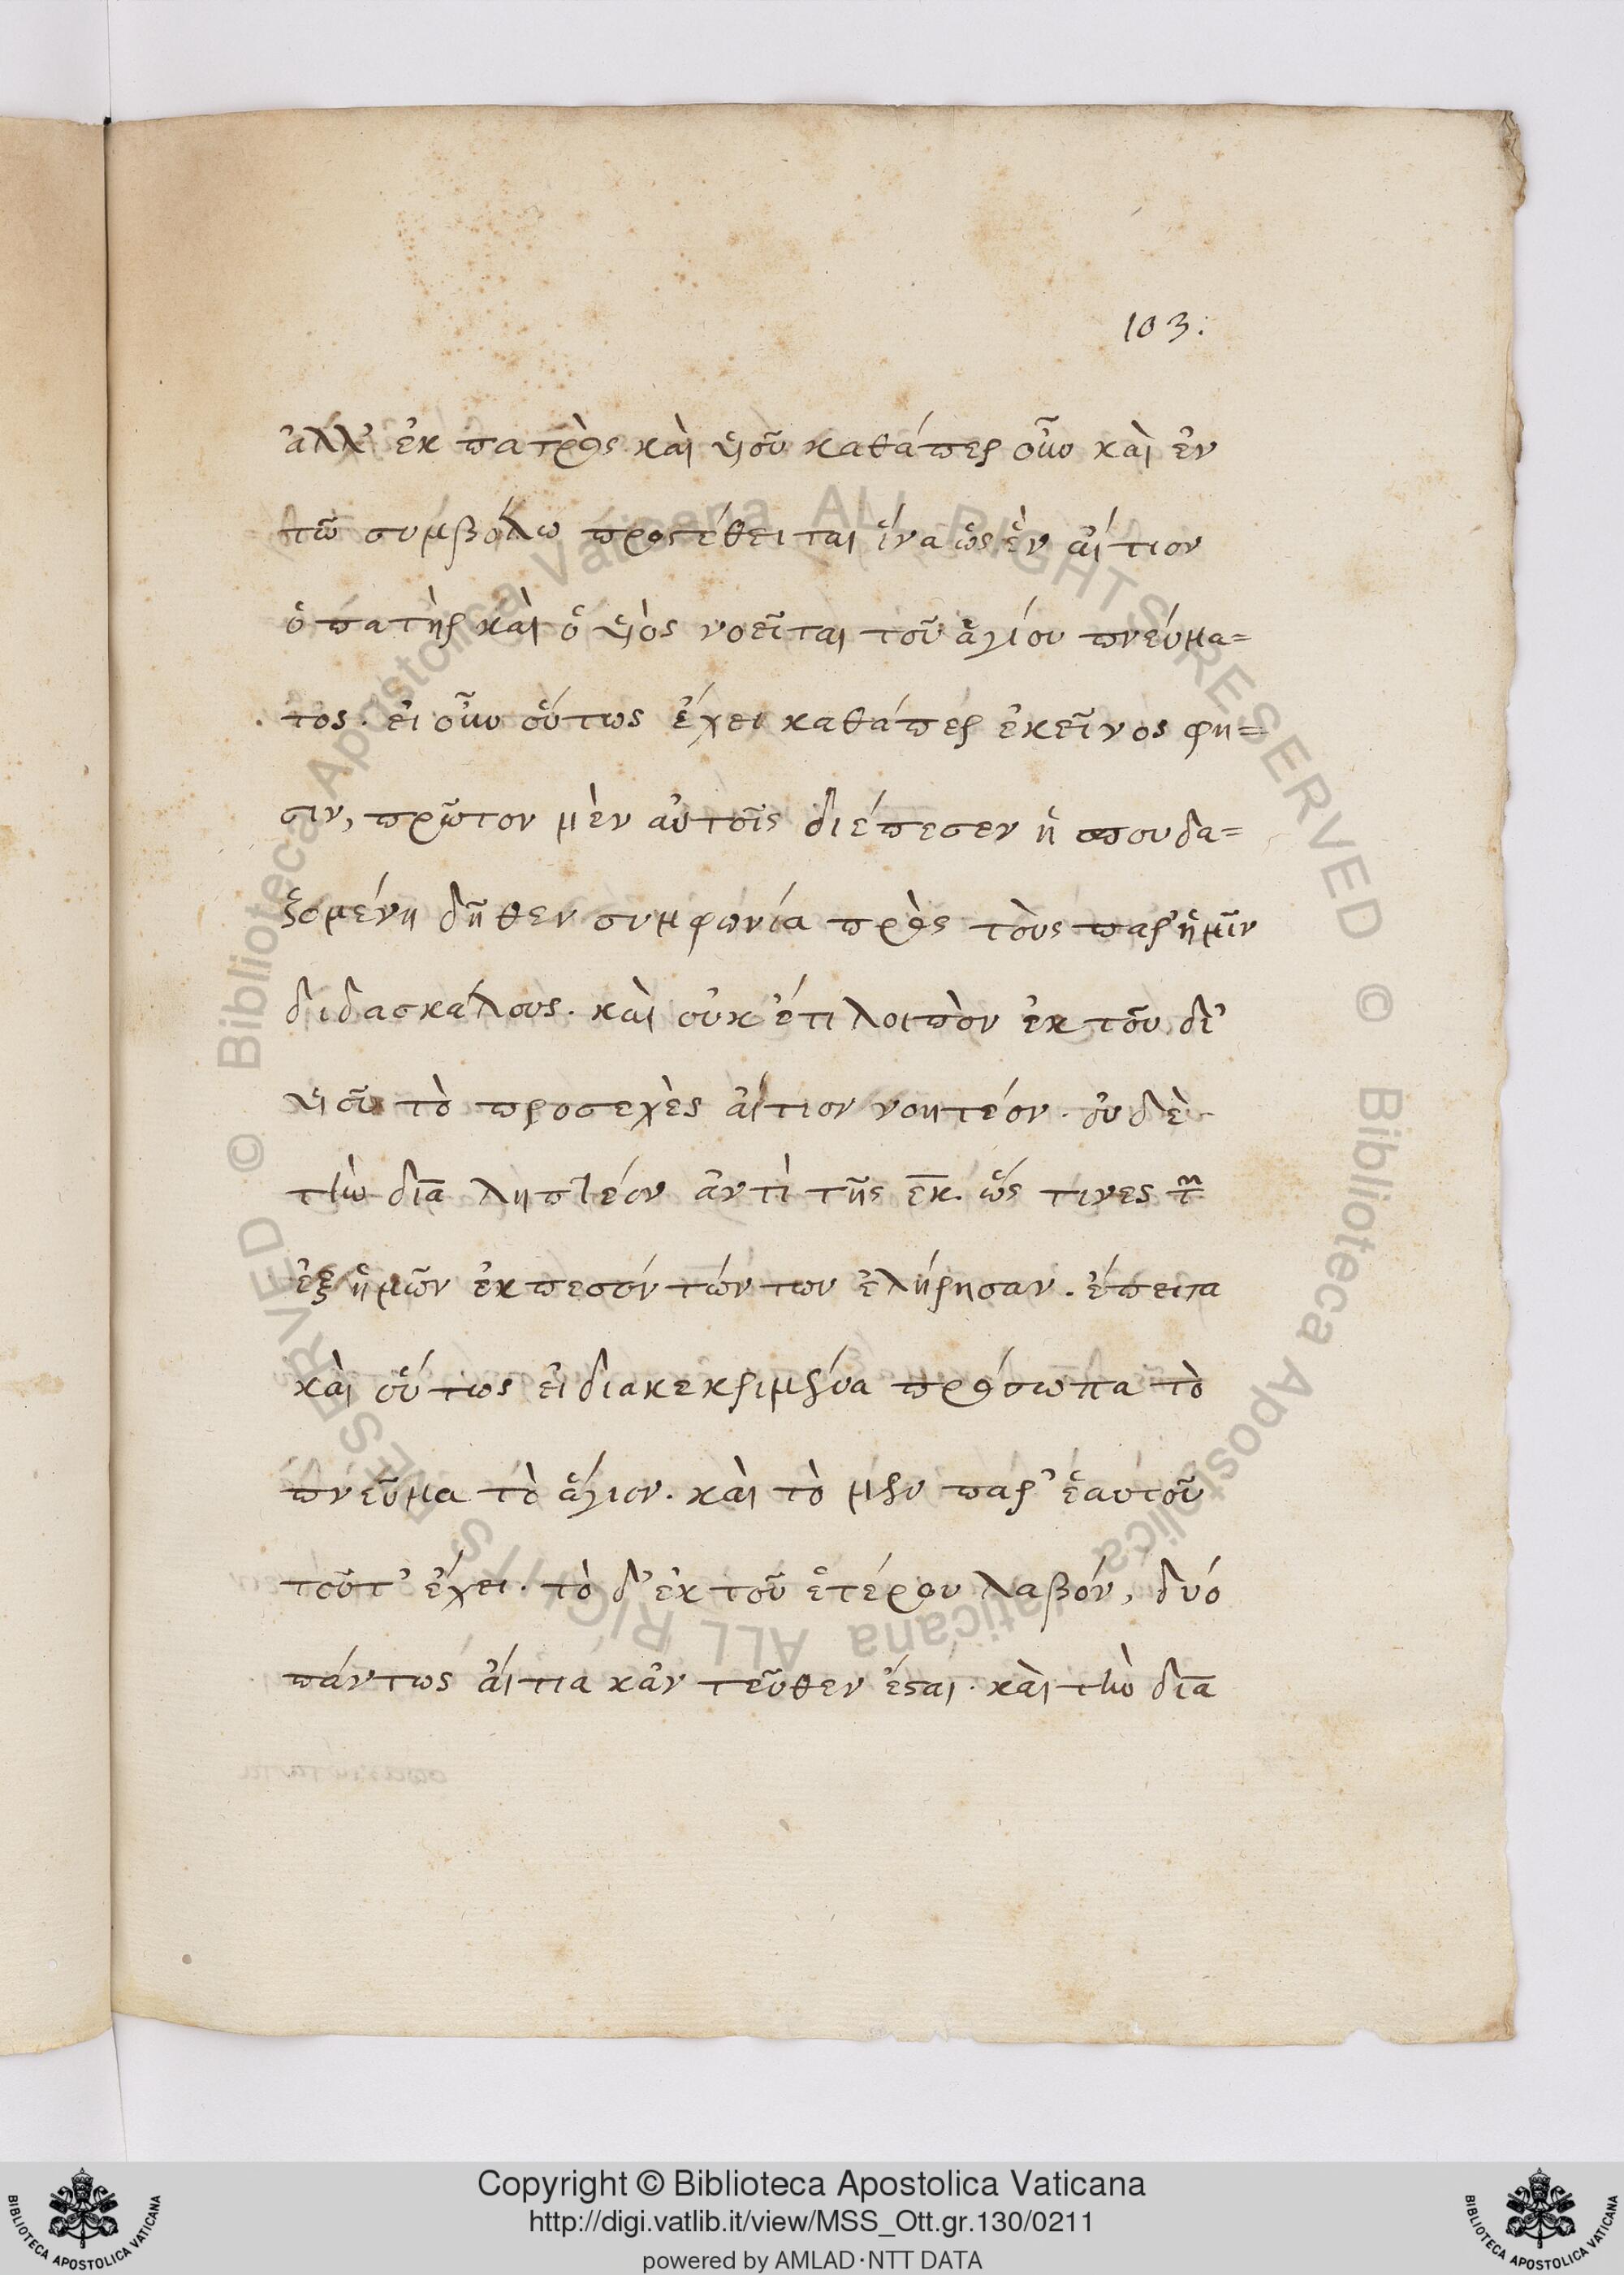 103:
ἀλλ' ἐκ πατρὸς καὶ ὑιοῦ καθάπερ οὖν καὶ ἐν
τῶ συμβόλω προστέθειται ἵνα ὡς ἓν αἴτιον
ὁ πατὴρ καὶ ὁ ὑιὸς νοεῖται τοῦ ἁγίου πνεύμα=
τος. εἰ οὖν οὕτως ἔχει καθάπερ ἐκεῖνος φη=
σιν, πρῶτον μὲν αὐτοῖς διέπεσεν ἡ σπουδα=
ζομένη δῆθεν συμφωνία πρὸς τοὺς παρ' ἡμῖν
διδασκάλους. καὶ οὐκ έτι λοιπὸν ἐκ τοῦ δι'
ὑιοῦ τὸ προσεχὲς αἴτιον νοητέον. οὐδὲ
τὴν δῖα ληπτέον ἀντὶ τῆς ἐκ. ὥς τινες τῶν
ἐξ ἡμῶν ἐκπεσόντώντων ἐλήρησαν. ἔπειτα
καὶ οὕτως εἰ διακεκριμένα πρόσωπα τὸ
πνεῦμα τὸ ἅγιον. καὶ τὸ μὲν παρ' ἑαυτοῦ
τοῦτ' ἔχει. τὸ δ' ἐκ τοῦ ἑτέρου λαβόν, δυό
πάντως αἴτια κἀν τεῦθεν ἔσται. καὶ τὴν δῖα
Copyright © Biblioteca Apostolica Vaticana
http://digi.vatlib.it/view/MSS_Ott.gr.130/0211
powered by AMLAD·NTT DATA
BIBLIOTECA APOSTOLICA VATICANA
BIBLIOTECA APOSTOLICA VATICANA
© Biblioteca Apostolica Vaticana ALL RIGHTS RESERVED © Biblioteca Apostolica Vaticana ALL RIGHTS RESERVED